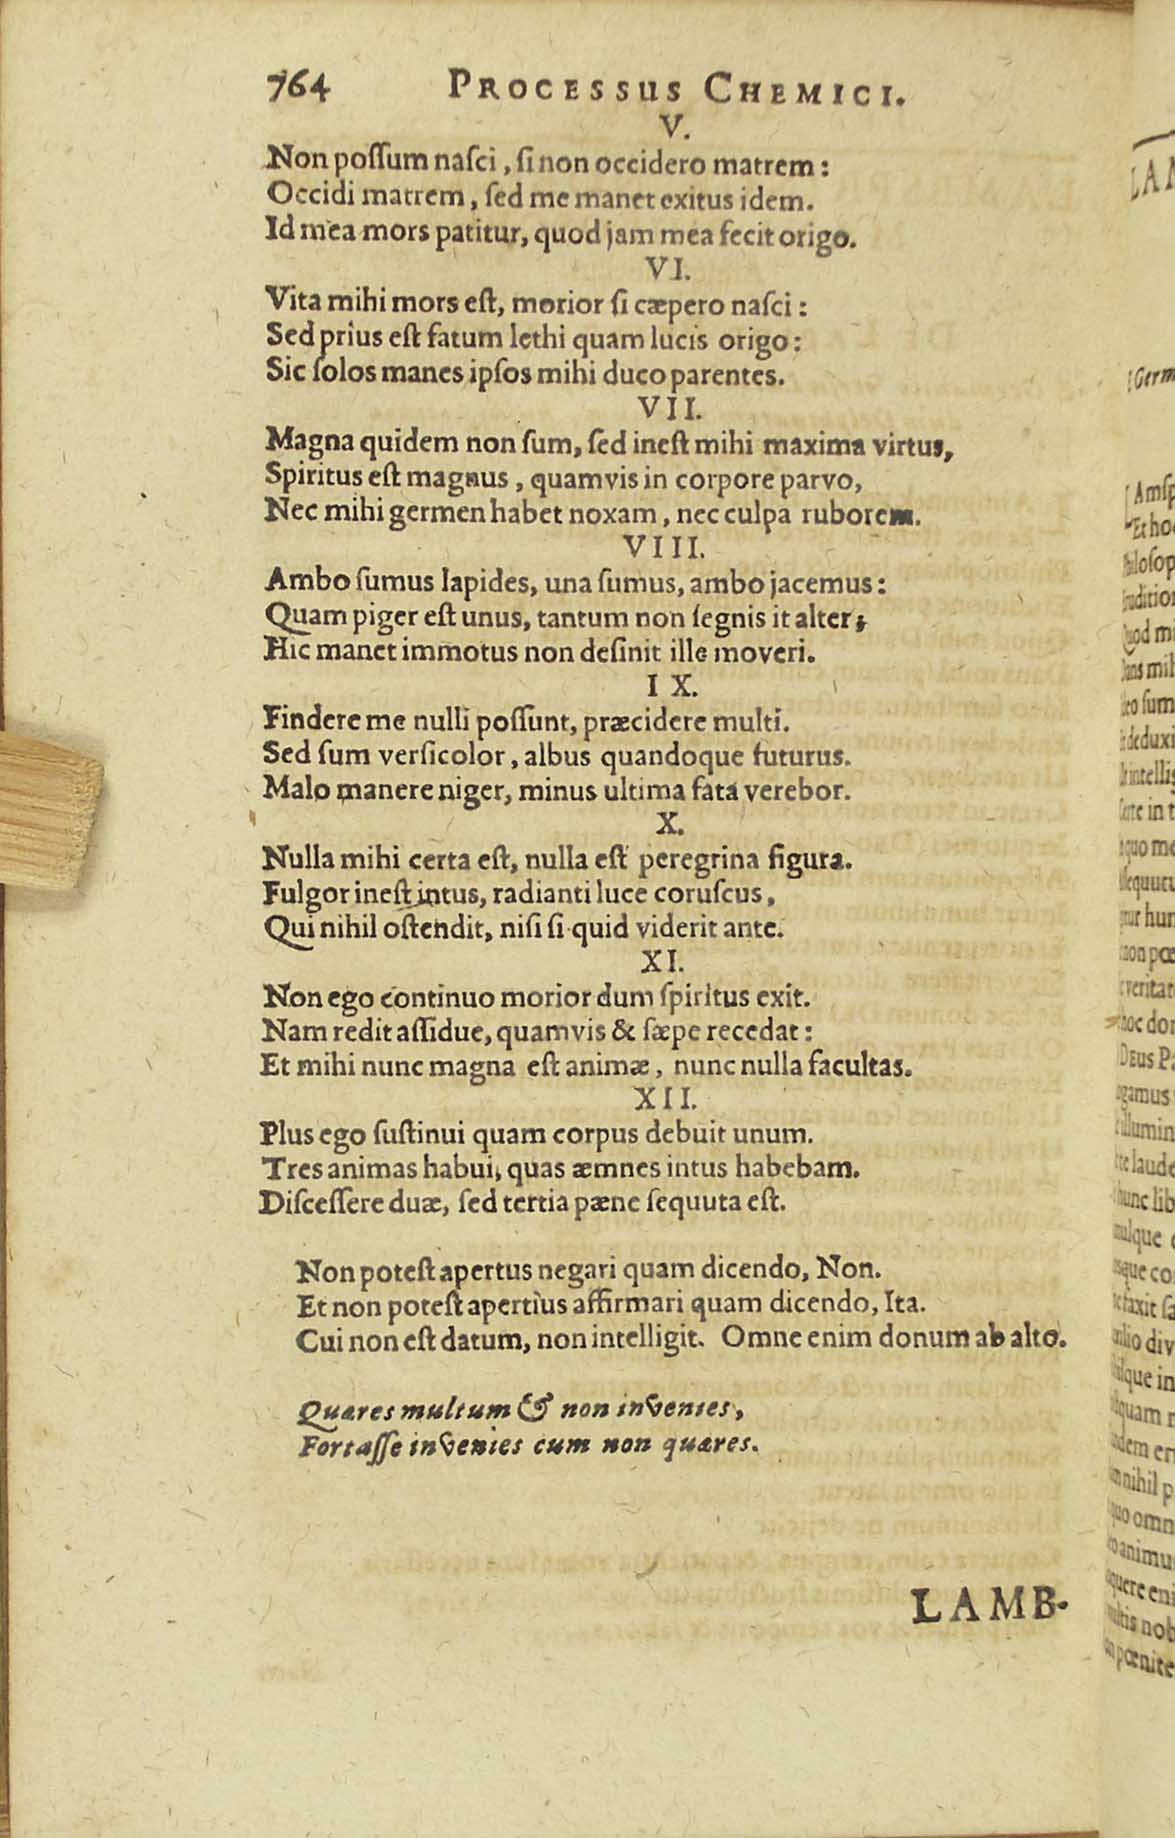 764 PROCESSUS CHEMICI.
V.
Non poſſum naſci, ſi non occidero matrem:
Occidi matrem, ſed me manet exitus idem.
Id mea mors patitur, quod jam mea fecit origo.
VI.
Vita mihi mors eſt, morior ſi cæpero naſci:
Sed prius eſt fatum lethi quam lucis origo:
Sic ſolos manes ipſos mihi duco parentes.
VII.
Magna quidem non ſum, ſed ineſt mihi maxima virtus,
Spiritus eſt magnus, quamvis in corpore parvo,
Nec mihi germen habet noxam, nec culpa ruborem.
VIII.
Ambo ſumus lapides, una ſumus, ambo jacemus:
Quam piger eſt unus, tantum non ſegnis it alter;
Hic manet immotus non deſinit ille moveri.
IX.
Findere me nulli poſſunt, præcidere multi.
Sed ſum verſicolor, albus quandoque futurus.
Malo manere niger, minus ultima fata verebor.
X.
Nulla mihi certa eſt, nulla eſt peregrina figura.
Fulgor ineſt intus, radianti luce coruſcus,
Qui nihil oſtendit, niſi ſi quid viderit ante.
XI.
Non ego continuo morior dum ſpiritus exit.
Nam redit aſſidue, quamvis & ſæpe recedat:
Et mihi nunc magna eſt animæ, nunc nulla facultas.
XII.
Plus ego ſuſtinui quam corpus debuit unum.
Tres animas habui, quas æmnes intus habebam.
Diſceſſere duæ, ſed tertia pæne ſequuta eſt.
Non poteſt apertus negari quam dicendo, Non.
Et non poteſt apertius affirmari quam dicendo, Ita.
Cui non eſt datum, non intelligit. Omne enim donum ab alto.
Quæres multum & non invenies,
Fortaſſe invenies cum non quæres.
LAMB-